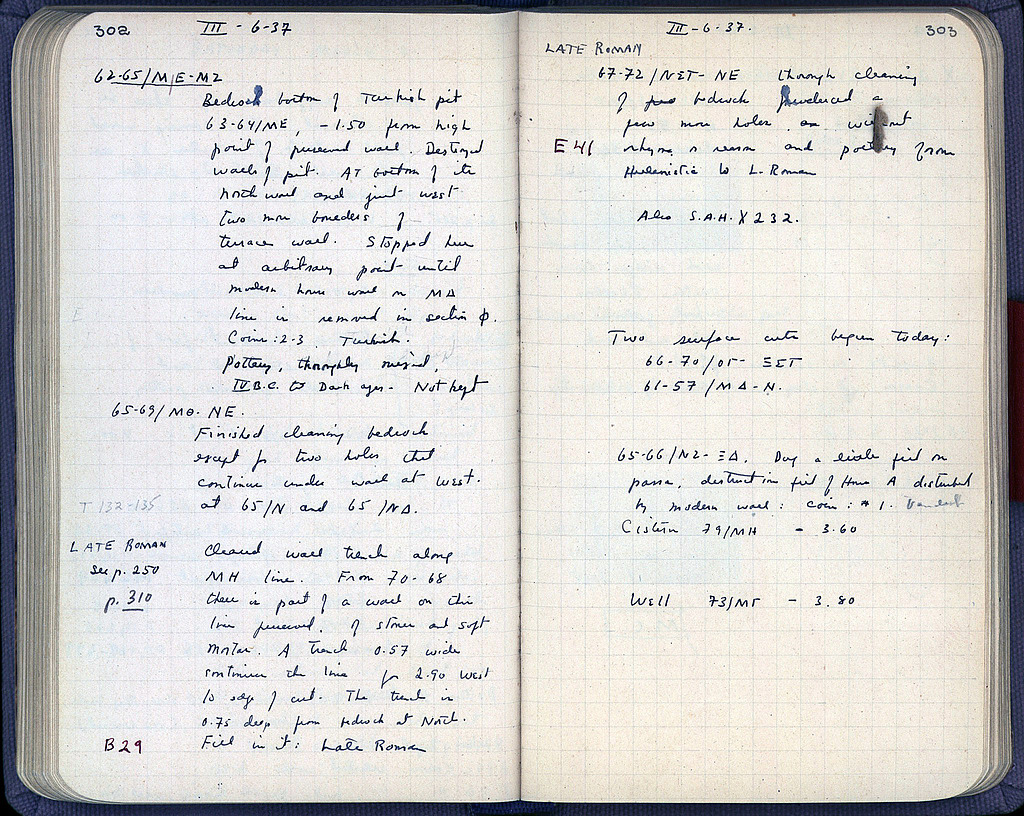 302
III - 6-37
62-65/ME-MZ
Bedrock bottom of Turkish pit
63-64/ME, -1.50 from high
point of preserved wall. Destroyed
walls of pit. At bottom of its
north wall and just west
two more boulders of
terrace wall. Stopped here
at arbitrary point until
modern house wall on MΔ
line is removed in section Φ.
Coins: 2-3. Turkish.
Pottery, thoroughly mixed,
IV B.C. to Dark ages - Not kept
65-69/MΘ-NE.
Finished cleaning bedrock
except for two holes that
continue under wall at west.
T 132-135
at 65/N and 65/NΔ.
LATE ROMAN
see p. 250
p. 310
Cleared wall trench along
MH line. From 70-68
there is part of a wall on this
line preserved, of stones and soft
mortar. A trench 0.57 wide
continues the line for 2.90 west
to edge of cut. The trench is
0.75 deep from bedrock at North.
B 29
Fill in it: Late Roman
III - 6-37.
303
LATE ROMAN
67-72/NΣT-NE thorough cleaning
of bedrock produced a
few more holes, without
E 41
rhyme or reason and pottery from
Hellenistic to L. Roman
Also S.A.H. X 232.
Two surface cuts begun today:
66-70/OΓ-ΞΣT
61-57/MΔ-N.
65-66/NZ-ΞΔ. Dug a little fill on
destruction fill of House A disturbed
by modern wall: coin: #1. Vandal
Cistern 79/MH - 3.60
Well 73/MΓ - 3.80